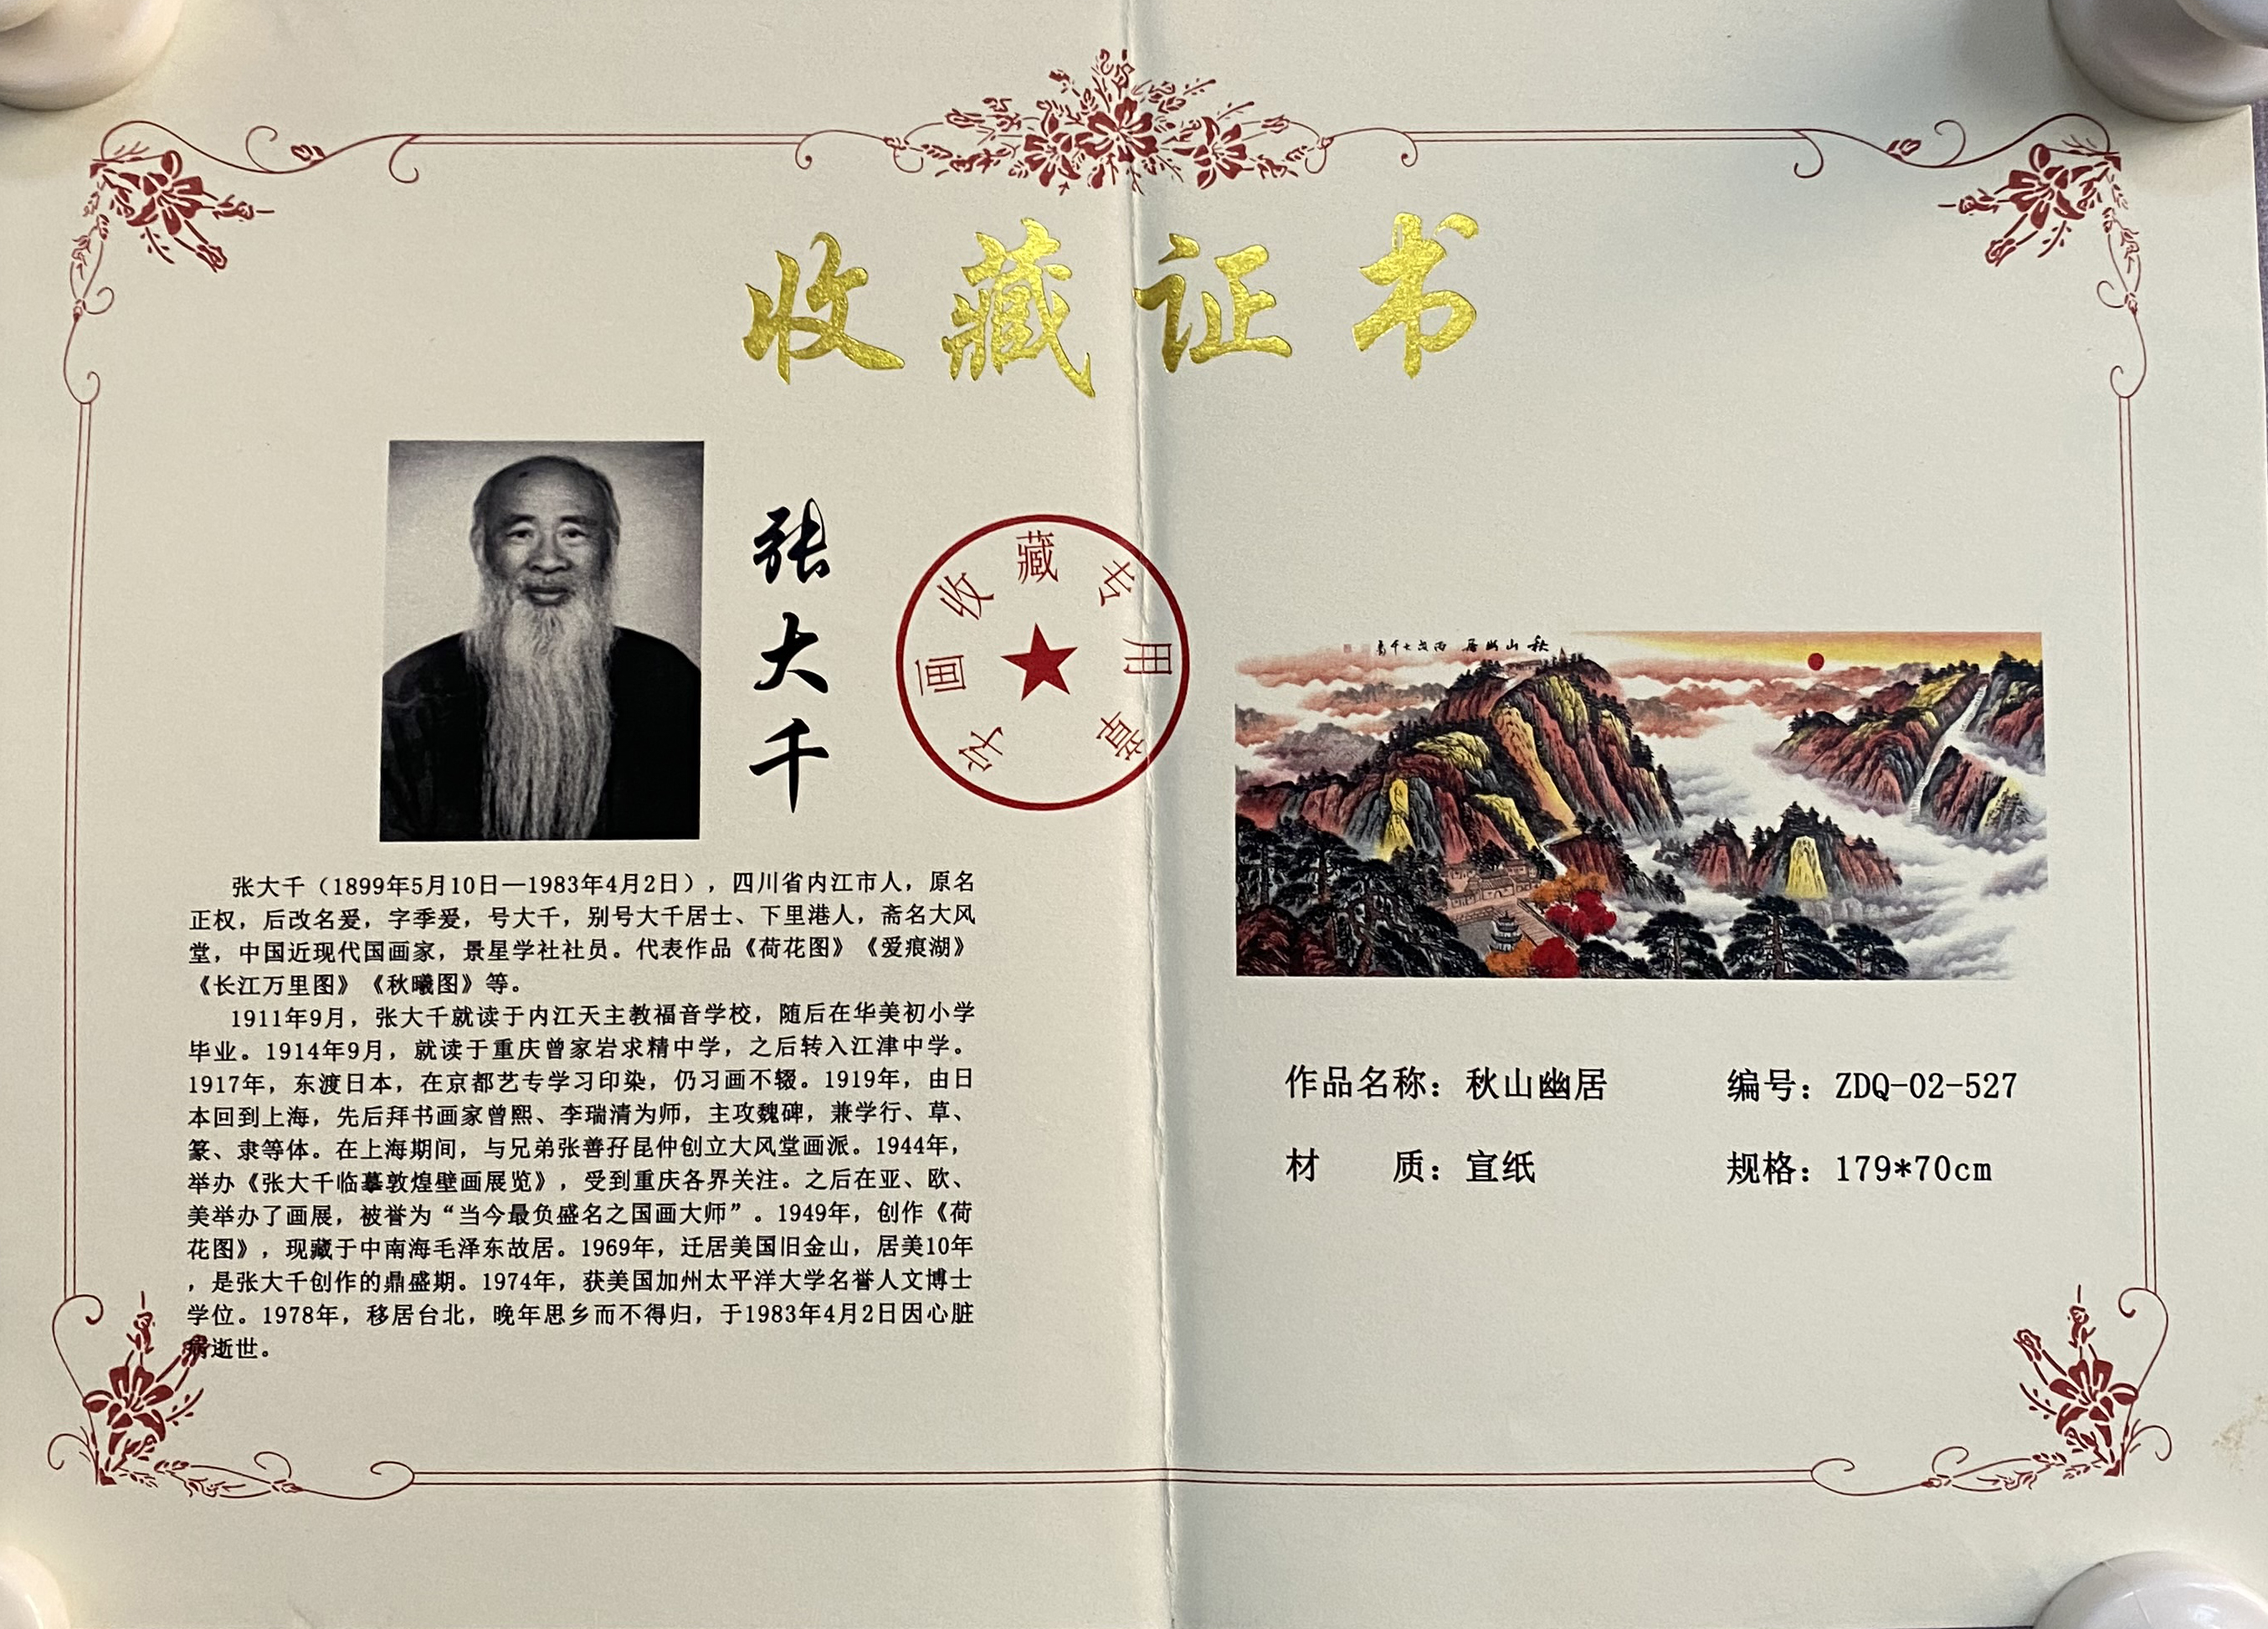 收藏证书
张大千
字画收藏专用章
张大千（1899年5月10日—1983年4月2日），四川省内江市人，原名
正权，后改名爰，字季爰，号大千，别号大千居士、下里港人，斋名大风
堂，中国近现代国画家，景星学社社员。代表作品《荷花图》《爱痕湖》
《长江万里图》《秋曦图》等。
1911年9月，张大千就读于内江天主教福音学校，随后在华美初小学
毕业。1914年9月，就读于重庆曾家岩求精中学，之后转入江津中学。
1917年，东渡日本，在京都艺专学习印染，仍习画不辍。1919年，由日
本回到上海，先后拜书画家曾熙、李瑞清为师，主攻魏碑，兼学行、草、
篆、隶等体。在上海期间，与兄弟张善孖昆仲创立大风堂画派。1944年，
举办《张大千临摹敦煌壁画展览》，受到重庆各界关注。之后在亚、欧、
美举办了画展，被誉为“当今最负盛名之国画大师”。1949年，创作《荷
花图》，现藏于中南海毛泽东故居。1969年，迁居美国旧金山，居美10年
，是张大千创作的鼎盛期。1974年，获美国加州太平洋大学名誉人文博士
学位。1978年，移居台北，晚年思乡而不得归，于1983年4月2日因心脏
病逝世。
秋山幽居
作品名称：秋山幽居 编号：ZDQ-02-527
材 质：宣纸 规格：179*70cm